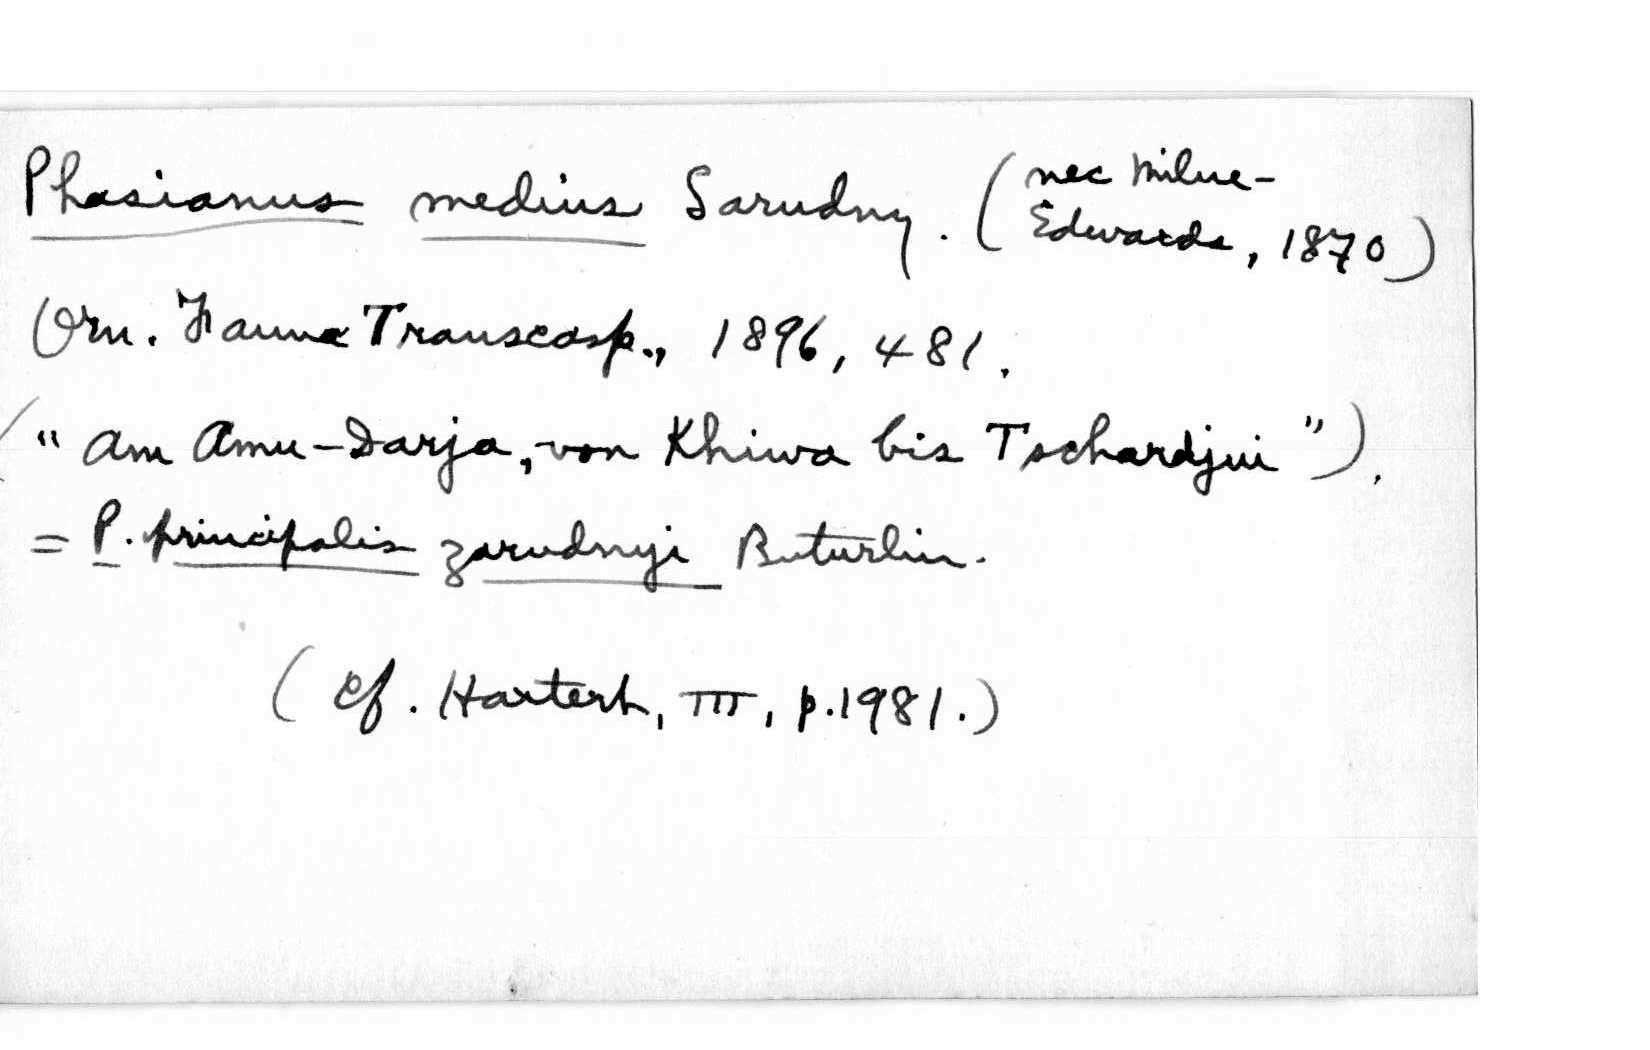 Phasianus medius Sarudny. (nec Milne-
Edwards, 1870)
Orn. Fauna Transcasp., 1896, 481.
("am Amu-Darja, von Khiwa bis Tschardjui").
= P. principalis zarudnyi Buturlin.
(Cf. Hartert, III, p. 1981.)